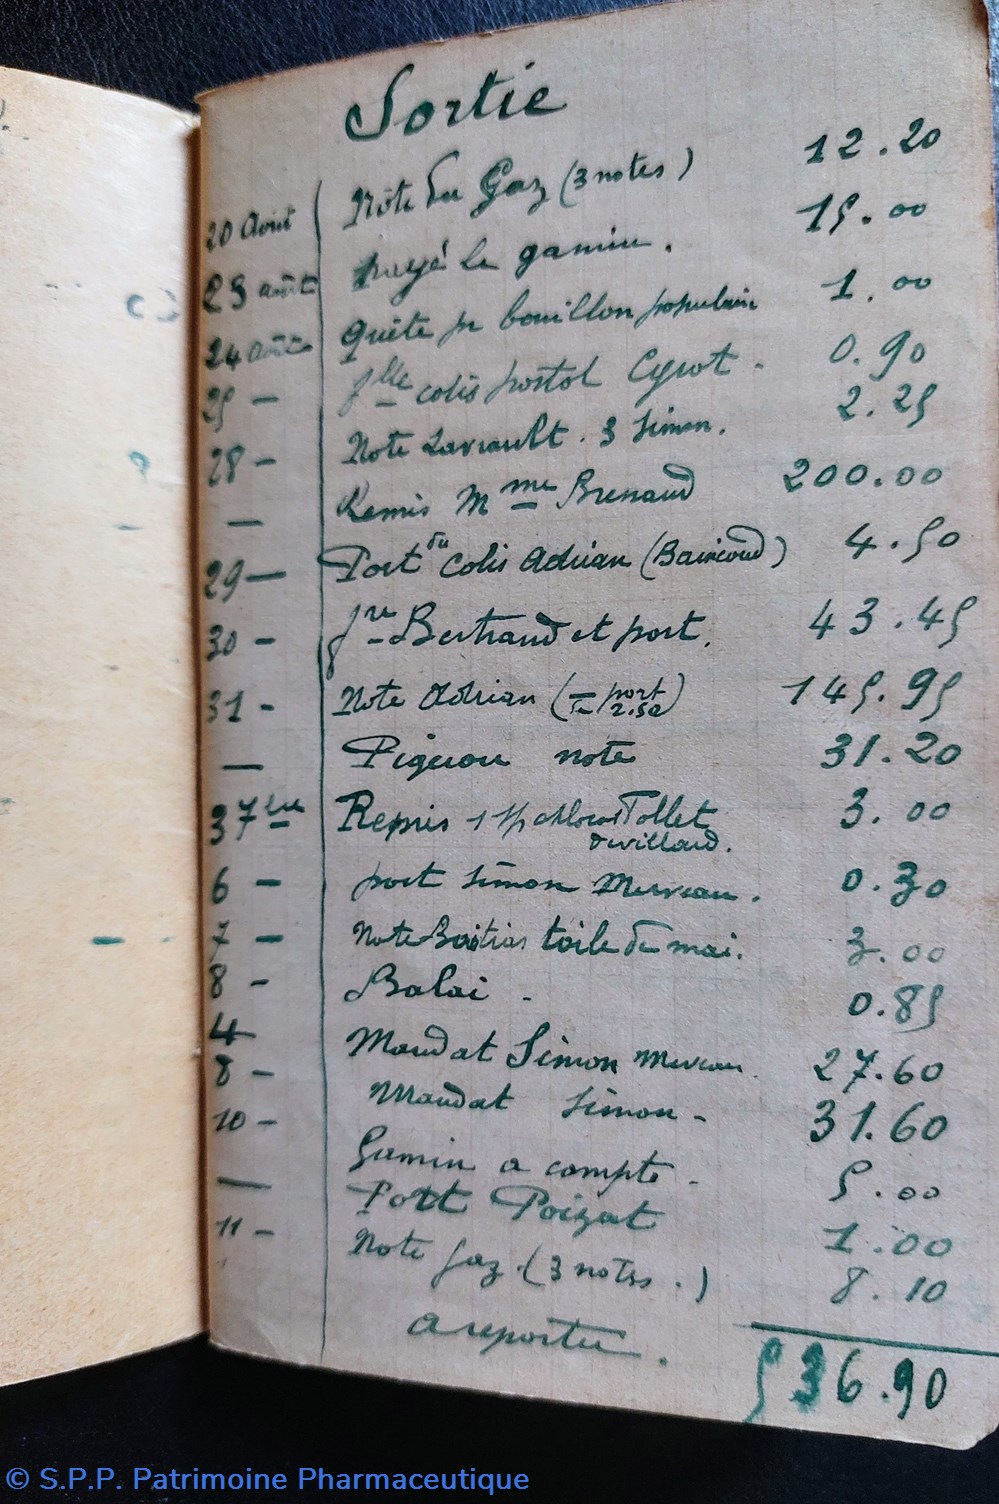 Sortie
20 Août Note du Gaz (3 notes) 12.20
23 août payé le gamin. 15.00
24 Août Quête pr bouillon populaire 1.00
25 — flle colis postal Cyrot - 0.90
28 — Note Lavrault. 3 Simon. 2.25
— Remis Mme Brenaud 200.00
29 — Port du Colis Adrian ( ) 4.50
30 — fre Bertrand et port. 43.45
31 - Note Adrian ( port 2.50) 145.95
— note 31.20
3 7bre Repris 1 Tollet 3.00
devillard.
6 — port Simon Merveau. 0.30
7 — Note toile de mai. 3.00
8 - Balai - 0.85
4 Mandat Simon Merveau. 27.60
8 — Mandat Simon - 31.60
10 - Gamin a compte - 5.00
— Port Poizat 1.00
11 - Note gaz. (3 notes.) 8.10
A reporter. 536.90
© S.P.P. Patrimoine Pharmaceutique